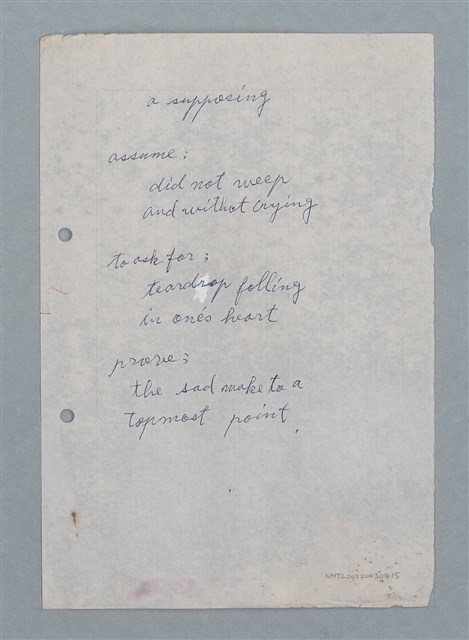 a supposing
assume:
did not weep
and withot crying
to ask for;
teardrop falling
in one's heart
prove;
the sad make to a
topmost point.